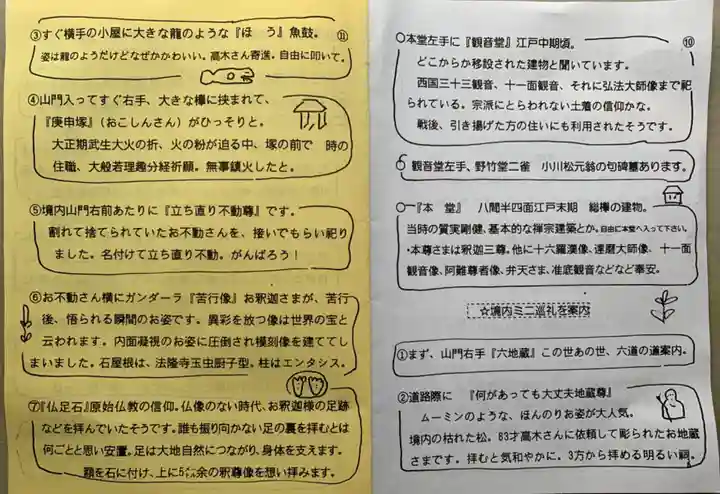 ⑩
○本堂左手に『観音堂』江戸中期頃。
どこからか移設された建物と聞いています。
西国三十三観音、十一面観音、それに弘法大師像まで祀
られている。宗派にとらわれない土着の信仰かな。
戦後、引き揚げた方の住いにも利用されたそうです。
○観音堂左手、野竹堂二雀 小川松元翁の句碑墓あります。
○『本 堂』 八間半四面江戸末期 総欅の建物。
当時の質実剛健、基本的な禅宗建築とか。自由に本堂へ入って下さい。
・本尊さまは釈迦三尊。他に十六羅漢像、達磨大師像、十一面
観音像、阿難尊者像、弁天さま、准底観音などなど奉安。
☆境内ミニ巡礼を案内
①まず、山門右手『六地蔵』この世あの世、六道の道案内。
②道路際に 『何があっても大丈夫地蔵尊』
ムーミンのような、ほんのりお姿が大人気。
境内の枯れた松。83才高木さんに依頼して彫られたお地蔵
さまです。拝むと気和やかに。3方から拝める明るい祠。
⑪
③すぐ横手の小屋に大きな龍のような『ほ う』魚鼓。
姿は龍のようだけどなぜかかわいい。高木さん寄進。自由に叩いて。
④山門入ってすぐ右手、大きな欅に挟まれて、
『庚申塚』(おこしんさん)がひっそりと。
大正期武生大火の折、火の粉が迫る中、塚の前で 時の
住職、大般若理趣分経祈願。無事鎮火したと。
⑤境内山門右前あたりに『立ち直り不動尊』です。
割れて捨てられていたお不動さんを、接いでもらい祀り
ました。名付けて立ち直り不動。がんばろう!
⑥お不動さん横にガンダーラ『苦行像』お釈迦さまが、苦行
後、悟られる瞬間のお姿です。異彩を放つ像は世界の宝と
云われます。内面凝視のお姿に圧倒され模刻像を建ててし
まいました。石屋根は、法隆寺玉虫厨子型。柱はエンタシス。
⑦『仏足石』原始仏教の信仰。仏像のない時代、お釈迦様の足跡
などを拝んでいたそうです。誰も振り向かない足の裏を拝むとは
何ごとと思い安置。足は大地自然につながり、身体を支えます。
額を石に付け、上に5㍍余の釈尊像を想い拝みます。